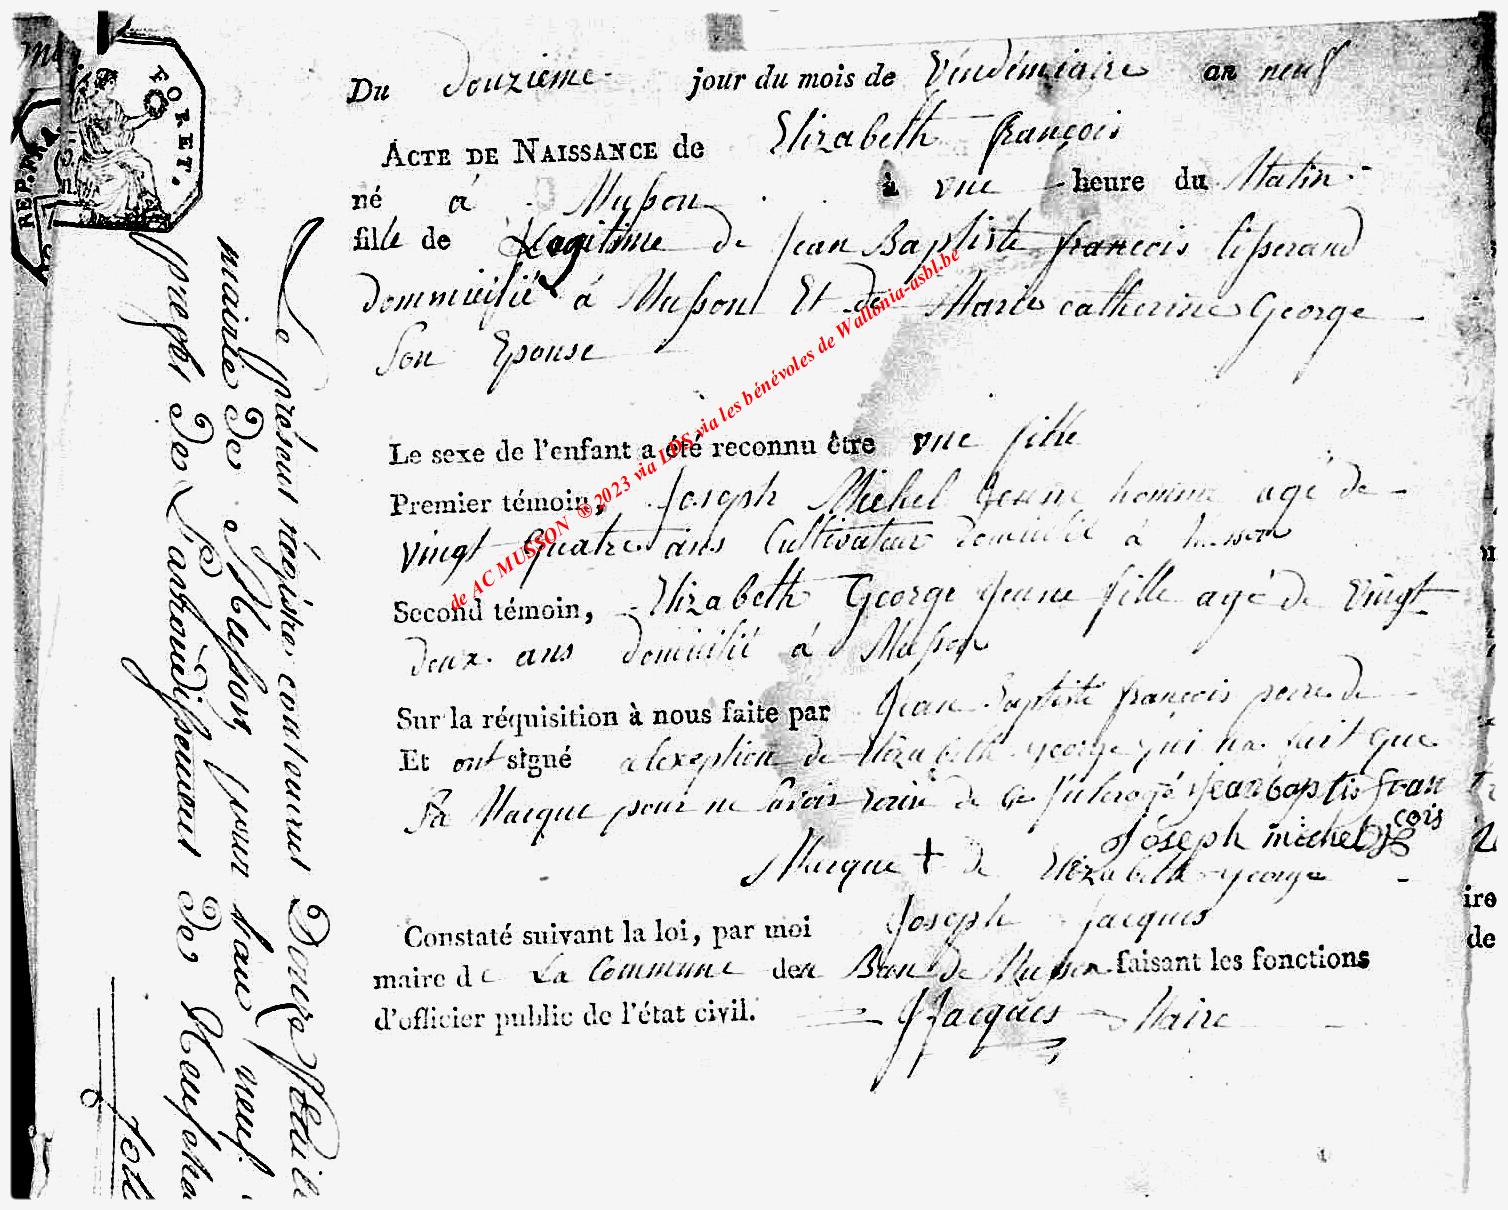 FORET.
REP. FRA
Du douzième jour du mois de Vendémiaire an neuf
ACTE DE NAISSANCE de Elizabeth françois
né à Musson à une heure du Matin
fille de Legitime de Jean Baptiste françois tisserand
dommicilié à Musson Et de Marie catherine George
Son Epouse
Le sexe de l'enfant a été reconnu être une fille
Premier témoin, Joseph Michel Jeune homme agé de
vingt quatre ans Cultivateur domicilié à Musson
Second témoin, Elizabeth George Jeune fille agé de Vingt
deux ans domicilié à Musson
Sur la réquisition à nous faite par Jean Baptiste françois perre de
Et ont signé a lexeption de Elizabeth George qui na fait que
sa Marque pour ne savoir de ce jean baptis fran
çois
Joseph michel
Marque + de Elizabeth George
Constaté suivant la loi, par moi Joseph Jacques
maire de La Commune den Ban de Musson faisant les fonctions
d'officier public de l'état civil. JJacques Maire
Le présent régistre contenant Douze feuil
mairie de Musson pour l'an neuf
prefet de L'arrondissement de Neufcha
de AC MUSSON ®2023 via LDS via les bénévoles de Wallonia-asbl.be
ire
de